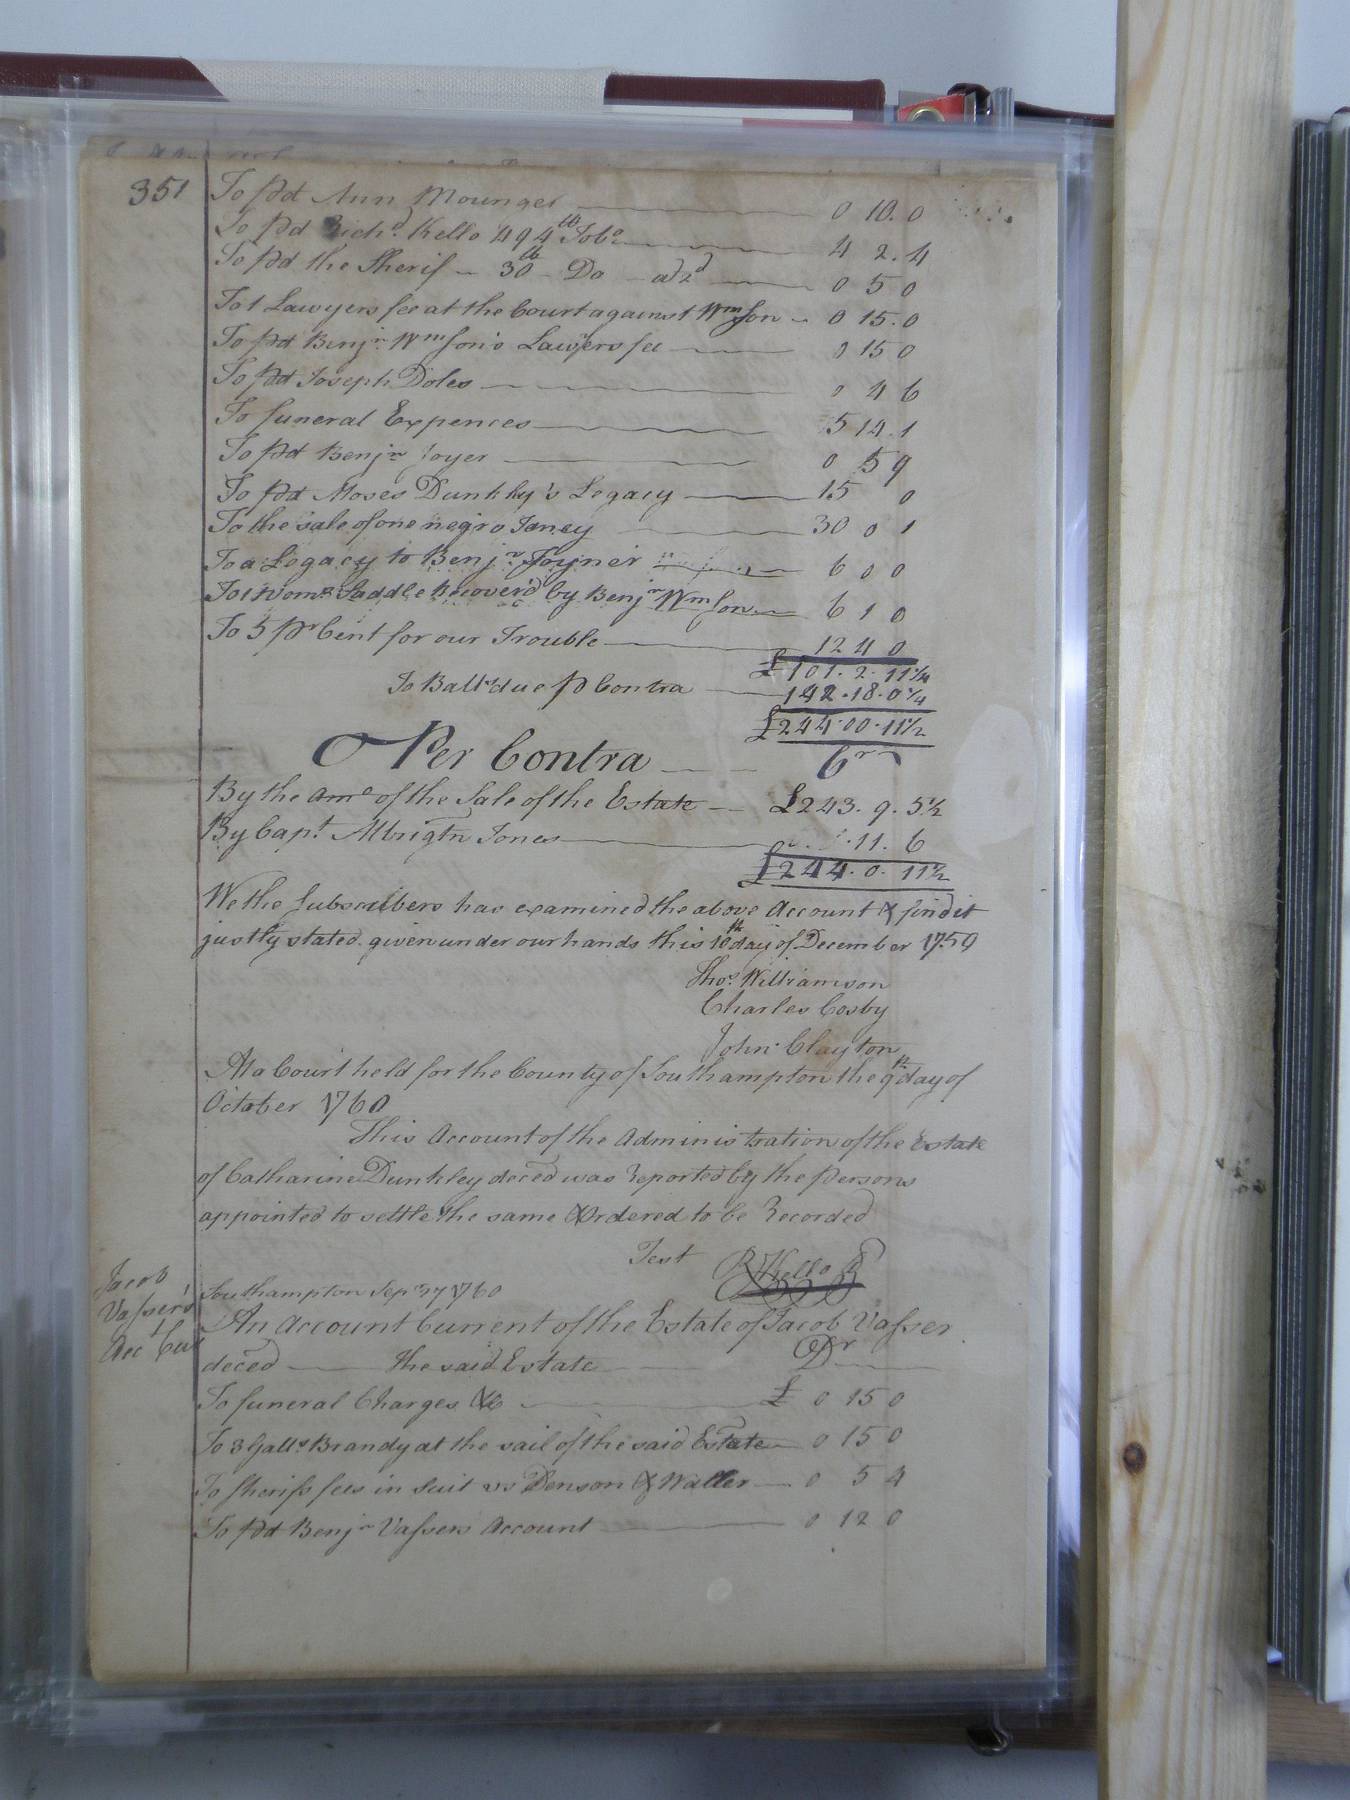 351
To pd Ann Mounger 0 10. 0
To pd Richd Kello 494 lb Tobo 4 2. 4
To pd the Sherif - 30 lb - Do - a 2d 0 5 0
To 1 Lawyers fee at the Court against Wmson 0 15. 0
To pd Benjn Wmson's Lawyers fee 0 15 0
To pd Joseph Doles 0 4 6
To funeral Expences 5 14. 1
To pd Benjn Joyer 0 5 9
To pd Moses Dunkley's Legacy 15 0
To the sale of one negro 30 0 1
To a Legacy to Benjn Joyner 6 0 0
To 1 Woms Saddle Recover'd by Benjn Wmson 6 1 0
To 5 Pr Cent for our Trouble 12 4 0
£101. 2. 11¼
To Balle due p Contra 142. 18. 0¼
£244. 00. 11½
Per Contra Cr
By the Amo of the Sale of the Estate £243. 9. 5½
By Capt Albrigtn Jones 11. 6
£244. 0. 11½
We the Subscribers has examined the above Account & find it
justly stated. given under our hands this 10th day of December 1759
Thos. Williamson
Charles Cosby
John Clayton
At a Court held for the County of Southampton the 9th day of
October 1760
This Account of the Administration of the Estate
of Catharine Dunkley deced was Reported by the persons
appointed to settle the same & Ordered to be Recorded
Test R Kello
Jacob
Vasser's
Acc Cur
Southampton Sepr 1760
An Account Current of the Estate of Jacob Vasser
deced the said Estate Dr
To funeral Charges &c £ 0 15 0
To 3 Galls Brandy at the sail of the said Estate 0 15 0
To sherifs fees in suit vs Denson & Waller 0 5 4
To pd Benjn Vassers Account 0 12 0